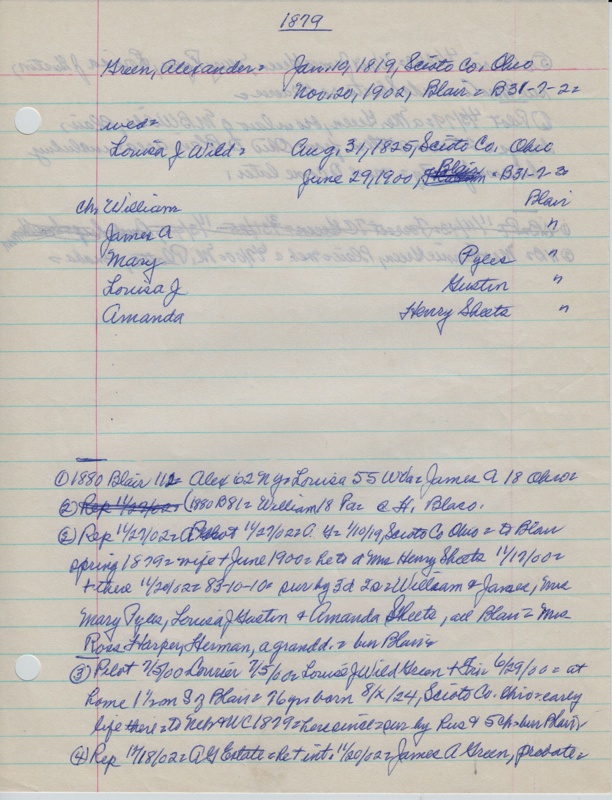 1879
Green, Alexander = Jan. 10, 1819, Scioto Co. Ohio
Nov. 20, 1902, Blair = B31-7-2=
wed=
Louisa J Wild = Aug. 31, 1825, Scioto Co. Ohio
June 29, 1900, Blair = B31-7-2=
Ch. William Blair
James A "
Mary Pyles "
Louisa J Gustin "
Amanda Henry Sheets "
① 1880 Blair 112= Alex 62 Ny= Louisa 55 W Va= James A 18 Ohio=
② Rep 11/27/02= (1880 B81= William 18 Pa= @ H. Blaco.
② Rep 11/27/02= Pilot 11/27/02= A. G= 1/10/19, Scioto Co Ohio = to Blair
spring 1879= wife + June 1900= he to d Mrs Henry Sheets 11/17/00=
+ there 11/20/02= 83-10-10= sur by 3d 2s= William & James, Mrs
Mary Pyles, Louisa J Gustin & Amanda Sheets, all Blair= Mrs
Ross Harper, Herman, a grandd. = bur Blair=
③ Pilot 7/5/00 Courier 7/5/00= Louisa J Wild Green + Fri 6/29/00= at
home 1 1/2 m S of Blair= 76 yrs born 8/x/24, Scioto Co. Ohio= early
life there= to Neb & WC 1879= here since= sur by Hus & 5 ch= bur Blair)
④ Rep 12/18/02= A G Estate= Pet int. 11/20/02= James A Green, probate=